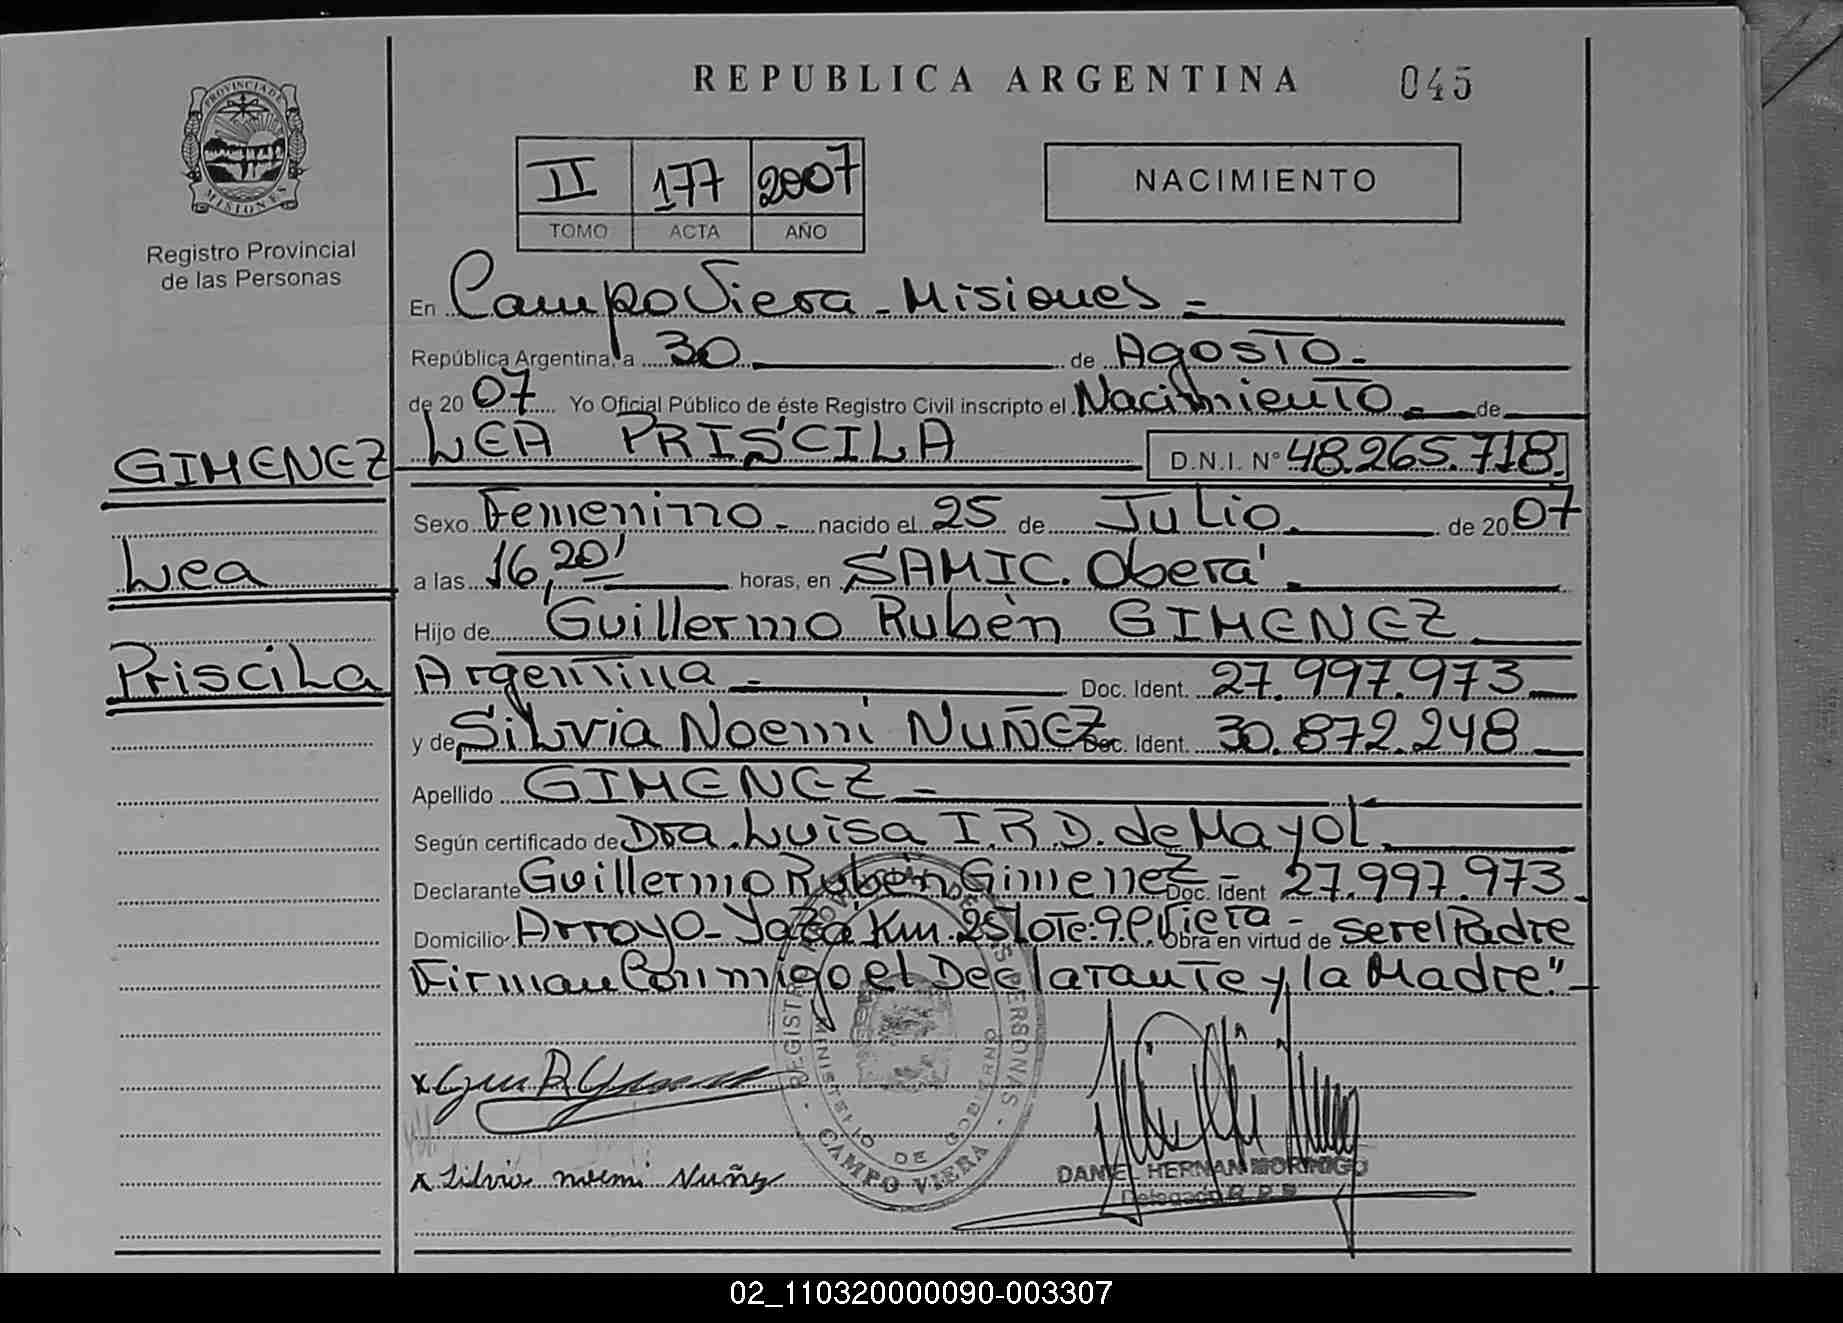 REPUBLICA ARGENTINA 045
PROVINCIA DE MISIONES
Registro Provincial
de las Personas
II 177 2007
TOMO ACTA AÑO
NACIMIENTO
En Campo Viera - Misiones -
República Argentina, a 30 de Agosto -
de 20 07 Yo Oficial Público de éste Registro Civil inscripto el Nacimiento - de
GIMENEZ
Lea
Priscila
LEA PRISCILA D.N.I. Nº 48.265.718.
Sexo Femenino - nacido el 25 de Julio. de 20 07
a las 16,20' horas, en SAMIC. Oberá -
Hijo de Guillermo Rubén GIMENEZ
Argentina - Doc. Ident. 27.997.973
y de Silvia Noemi NUÑEZ Doc. Ident. 30.872.248
Apellido GIMENEZ -
Según certificado de Dra. Luisa I.R.D. de Mayol
Declarante Guillermo Rubén Gimenez - Doc. Ident 27.997.973
Domicilio Arroyo - Yazá Km. 25 Lote. 9. C. Viera - Obra en virtud de ser el Padre
Firman Conmigo el Declarante y la Madre" -
x Silvia noemi Nuñez
REGISTRO DE LAS PERSONAS
MINISTERIO DE GOBIERNO
CAMPO VIERA
DANIEL HERNAN MORINIGO
Delegado R.P.P.
02_110320000090-003307